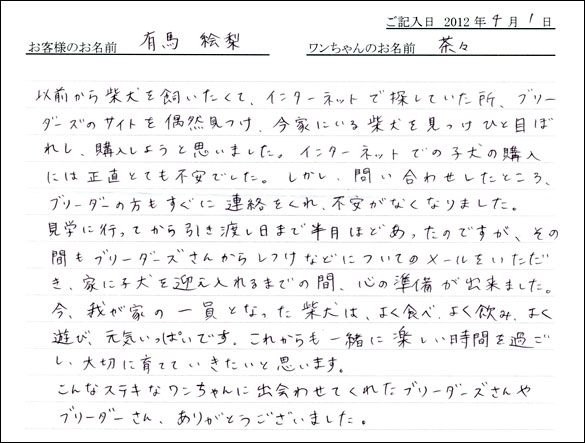 ご記入日 2012年4月1日
お客様のお名前 有馬 絵梨 ワンちゃんのお名前 茶々
以前から柴犬を飼いたくて、インターネットで探していた所、ブリー
ダーズのサイトを偶然見つけ、今家にいる柴犬を見つけひと目ぼ
れし、購入しようと思いました。インターネットでの子犬の購入
には正直とても不安でした。しかし、問い合わせしたところ、
ブリーダーの方もすぐに連絡をくれ、不安がなくなりました。
見学に行ってから引き渡し日まで半月ほどあったのですが、その
間もブリーダーズさんからしつけなどについてのメールをいただ
き、家に子犬を迎え入れるまでの間、心の準備が出来ました。
今、我が家の一員となった柴犬は、よく食べ、よく飲み、よく
遊び、元気いっぱいです。これからも一緒に楽しい時間を過ご
し、大切に育てていきたいと思います。
こんなステキなワンちゃんに出会わせてくれたブリーダーズさんや
ブリーダーさん、ありがとうございました。